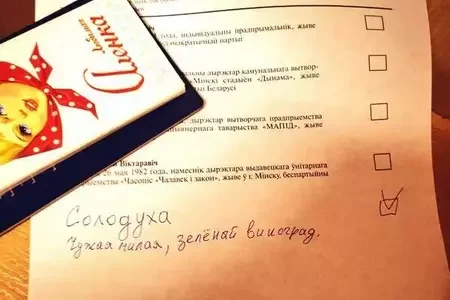 Любимая
Аленка
года, індывідуальны прадпрымальнік, жыве
дэмакратычнай партыі
дырэктар камунальнага вытвор-
Мінскі стадыён «Дынама», жыве
Беларусі
дырэктар вытворчага прадпрыемства
таварыства «МАПІД», жыве
Віктаравіч
26 мая 1982 года, намеснік дырэктара выдавецкага ўнітарнага
прадпрыемства «Часопіс «Чалавек і закон», жыве ў г. Мінску, беспартыйны
Солодуха
Чужая милая, зелёный виноград.